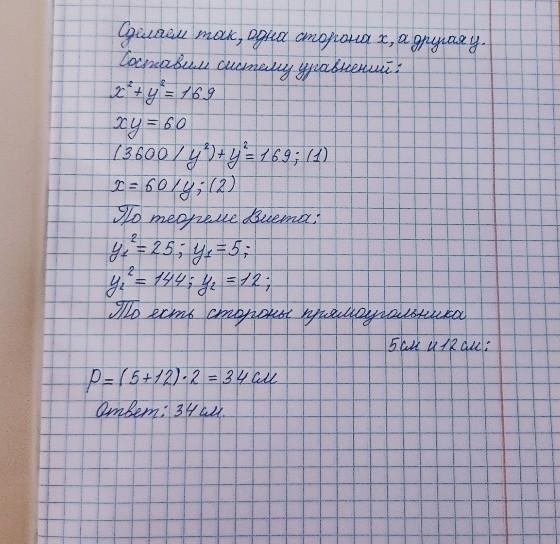 Сделаем так, одна сторона x, а другая y.
Составим систему уравнений:
x²+y²=169
xy=60
(3600/y²)+y²=169; (1)
x=60/y; (2)
По теореме Виета:
y₁²=25; y₁=5;
y₂²=144; y₂=12;
То есть стороны прямоугольника
5см и 12см:
P=(5+12)·2=34см
Ответ: 34см.